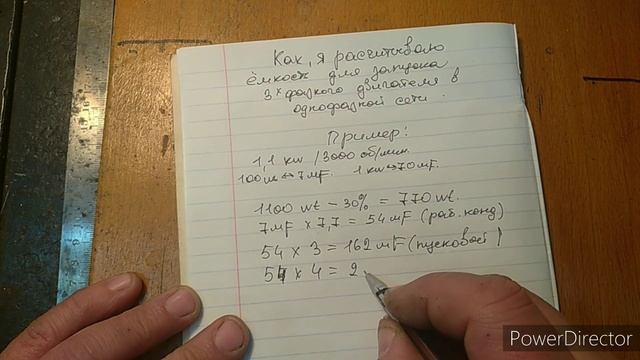 Как я расчитываю
ёмкость для запуска
3х фазного двигателя в
однофазной сети.
Пример:
1,1 kw / 3000 об/мин.
100w ↔ 7mF. 1kw ↔ 70mF.
1100 wt - 30% = 770 wt.
7mF × 7,7 = 54 mF (раб. конд)
54 × 3 = 162 mF (пусковой)
54 × 4 = 2
PowerDirector